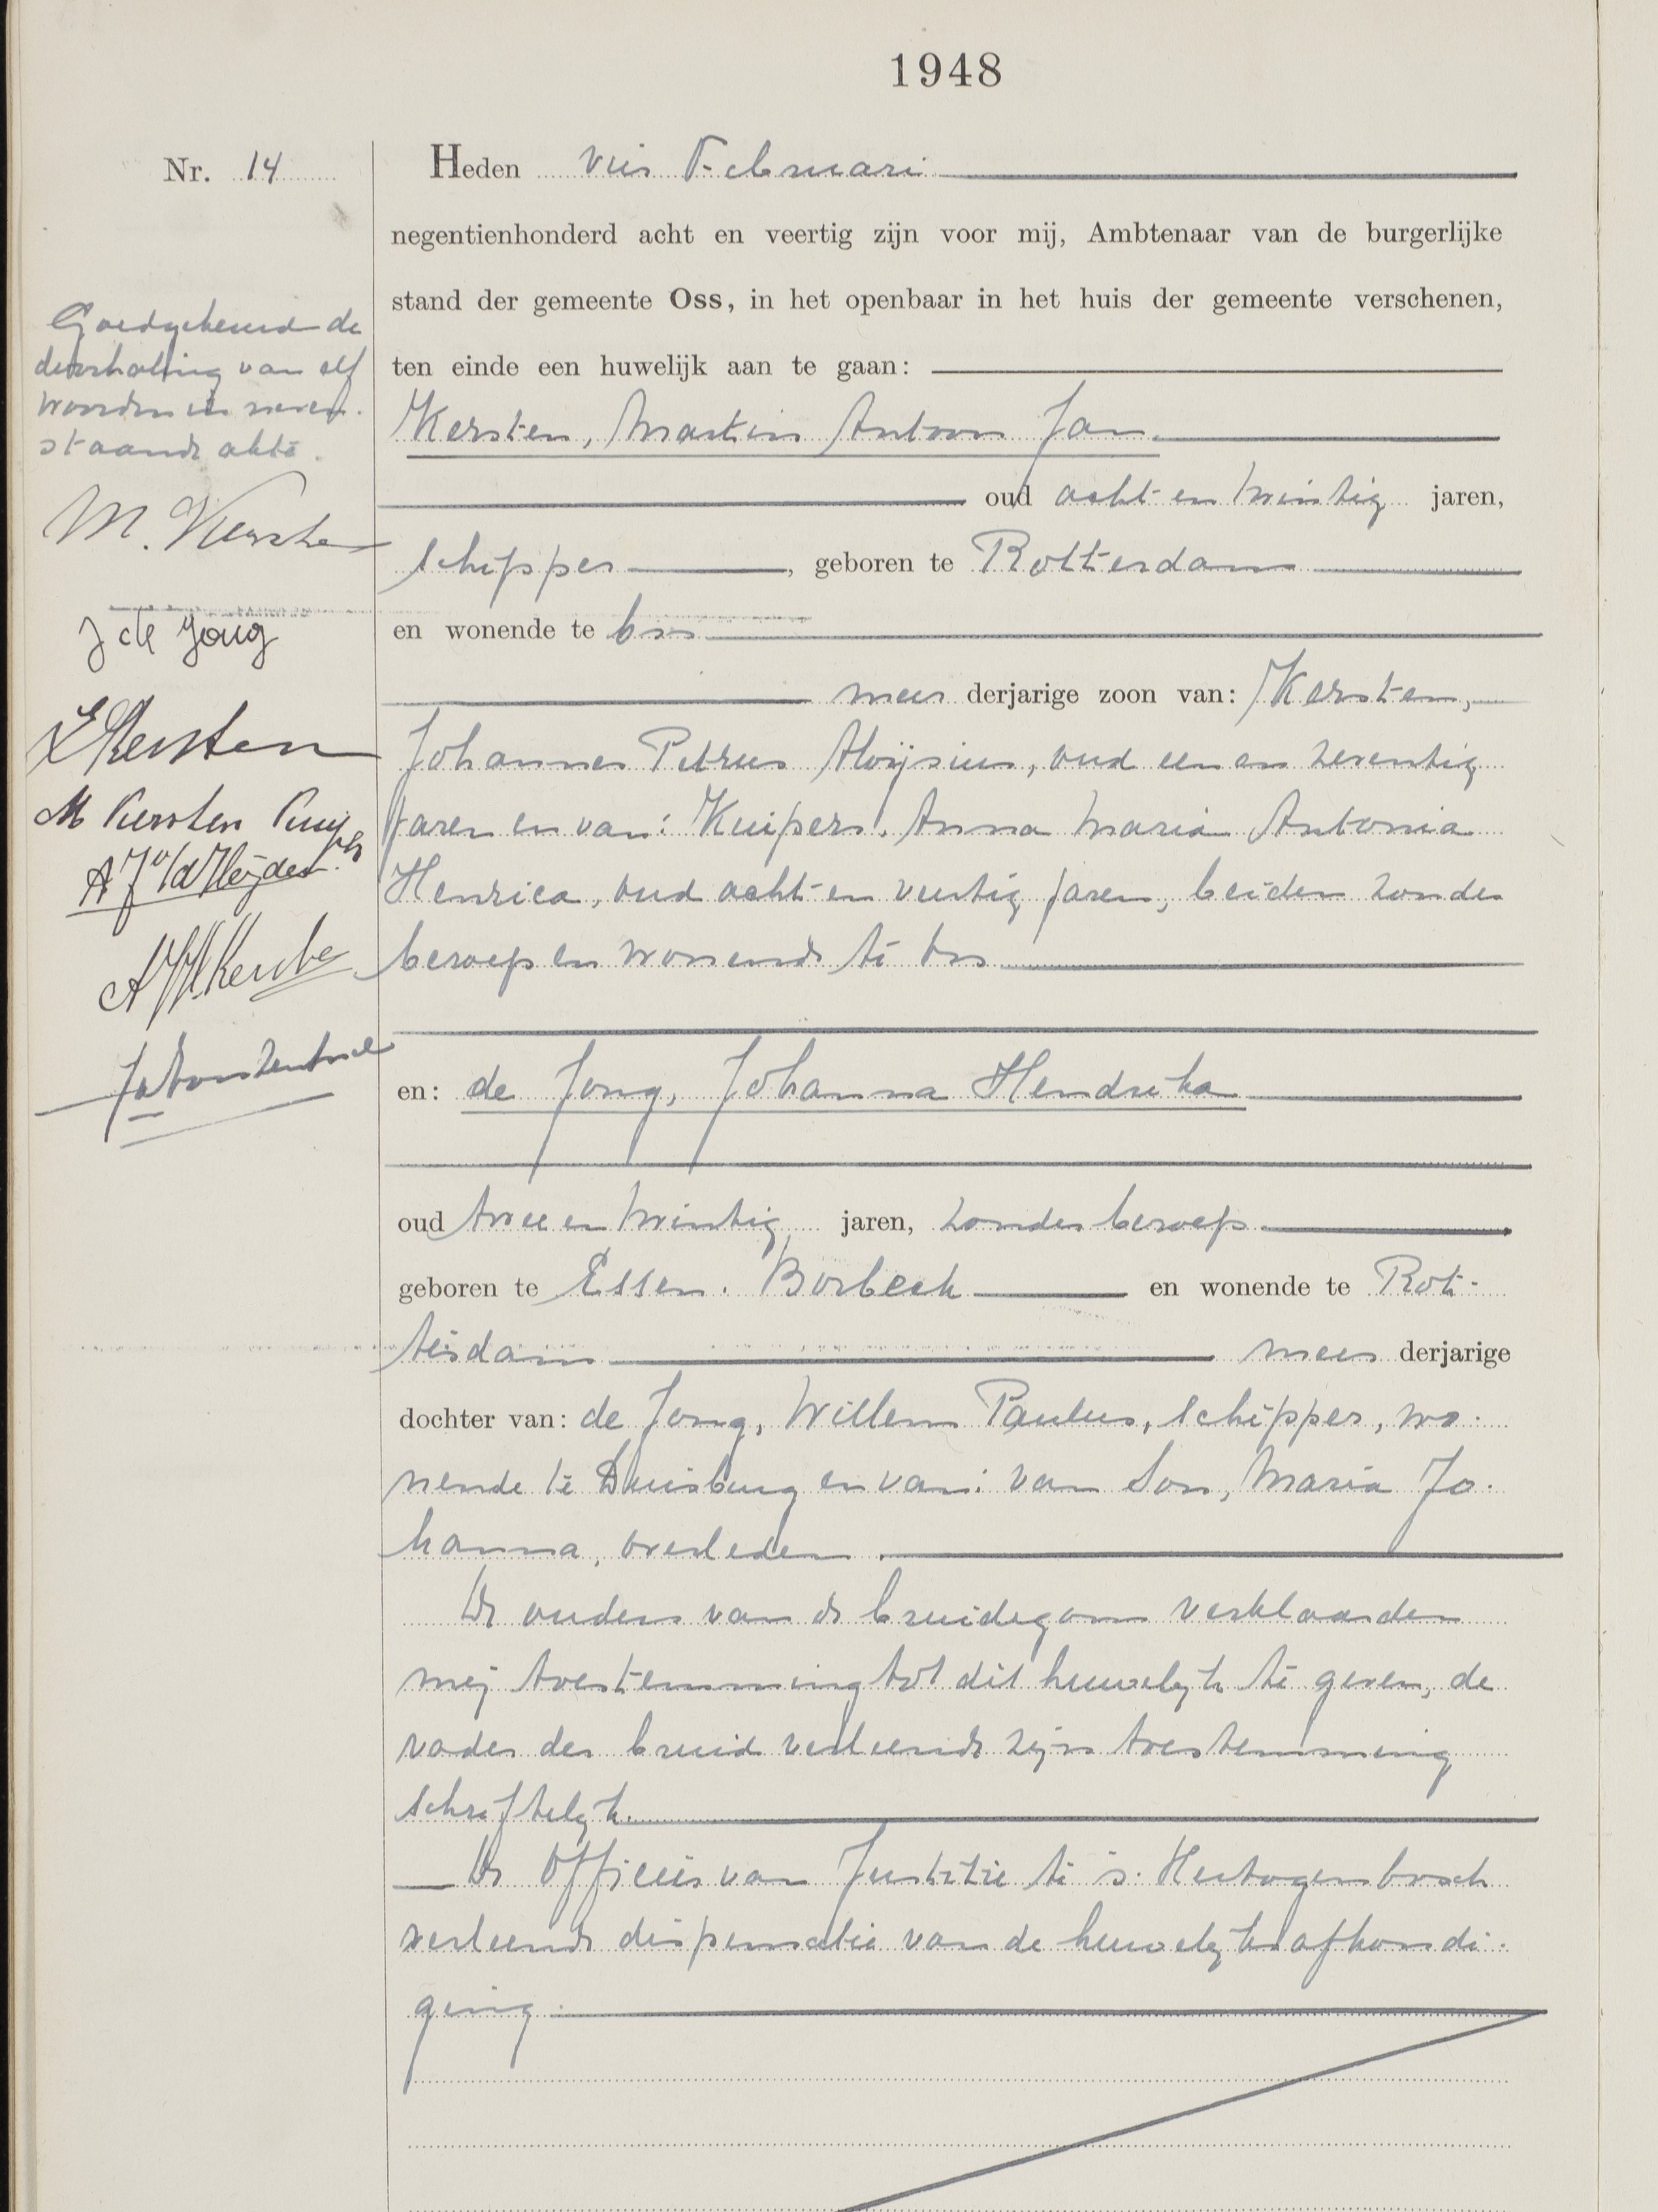 1948
Nr. 14
Heden vier Februari
negentienhonderd acht en veertig zijn voor mij, Ambtenaar van de burgerlijke
stand der gemeente Oss, in het openbaar in het huis der gemeente verschenen,
ten einde een huwelijk aan te gaan:
Kersten, Martin Antoon Jan
oud acht en twintig jaren,
schipper, geboren te Rotterdam
en wonende te Oss
meer derjarige zoon van: Kersten,
Johannes Petrus Aloÿsius, oud een en zeventig
jaren en van: Kuipers, Anna Maria Antonia
Henrica, oud acht en veertig jaren, beiden zonder
beroep en wonende te Oss
en: de Jong, Johanna Hendrika
oud twee en twintig jaren, zonder beroep
geboren te Essen. Borbeck en wonende te Rot-
terdam meer derjarige
dochter van: de Jong, Willem Paulus, schipper, wo-
nende te Duisburg en van: van Son, Maria Jo-
hanna, overleden.
De ouders van de bruidegom verklaarden
mij toestemming tot dit huwelijk te geven, de
vader der bruid verleende zijn toestemming
schriftelijk.
De Officier van Justitie te 's-Hertogenbosch
verleende dispensatie van de huwelijksafkondi-
ging.
Goedgekeurd de
doorhaling van elf
woorden in neven-
staande akte.
M. Kersten
J de Jong
Kersten
M Kersten Kuijpers
A J v/d Heijden
Kersten